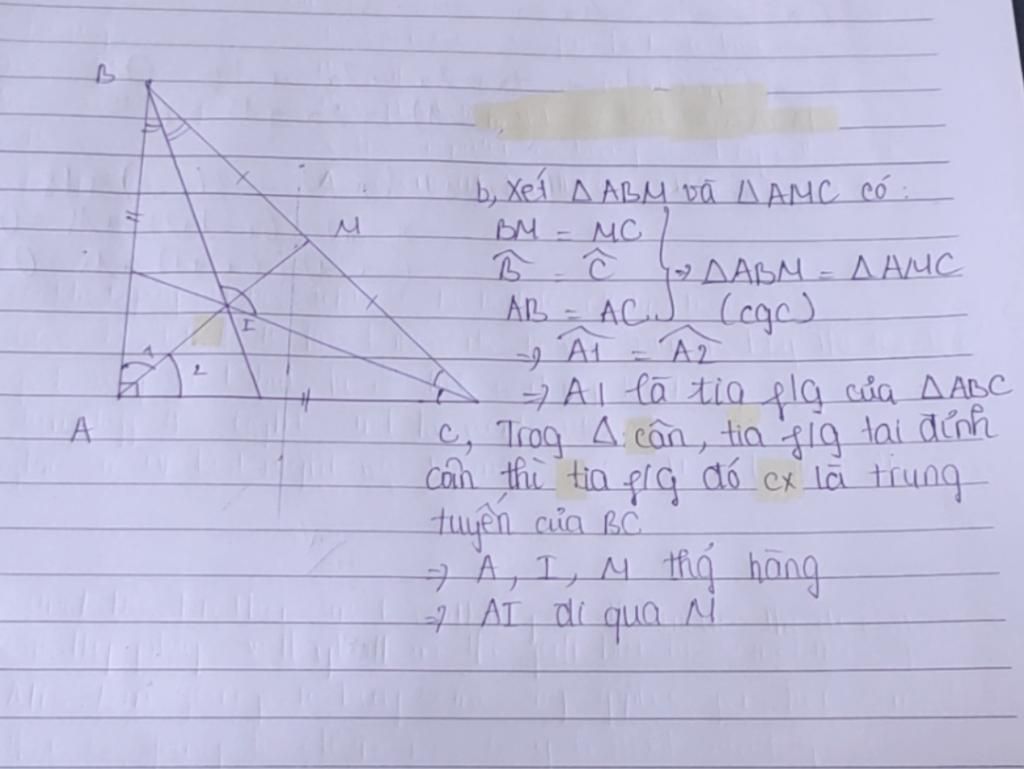 B
M
I
1
2
A
C
b, Xét ΔABM và ΔAMC có:
BM = MC
B̂ = Ĉ ⇒ ΔABM = ΔAMC
AB = AC (cgc)
⇒ Â1 = Â2
⇒ AI là tia f/g của ΔABC
c, Trog Δ cân, tia f/g tại đỉnh
cân thì tia f/g đó cx là trung
tuyến của BC
⇒ A, I, M thẳ hàng
⇒ AI đi qua M